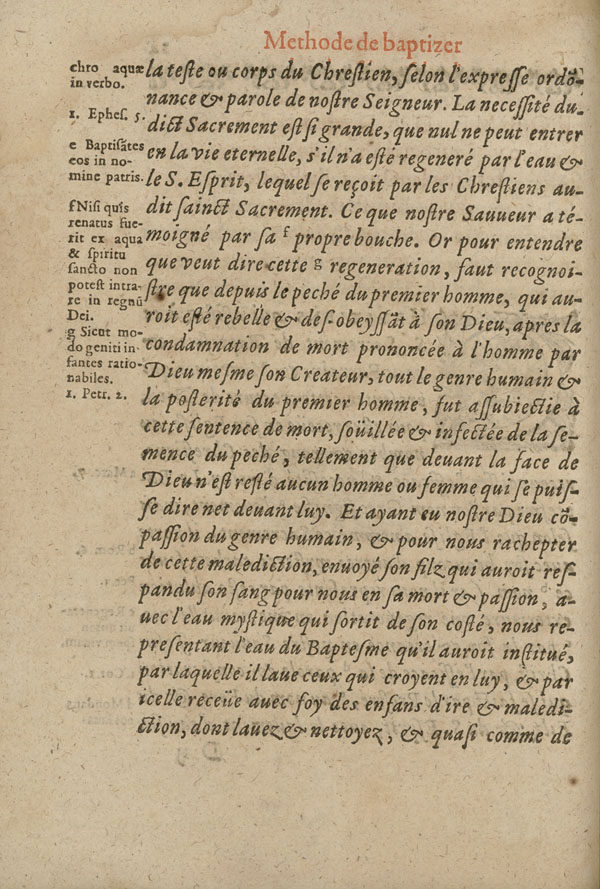 Methode de baptizer
chro aquæ
in verbo.
1. Ephes. 5.
e Baptisãtes
eos in no-
mine patris.
f Nisi quis
renatus fue-
rit ex aqua
& spiritu
sancto non
potest intra-
re in regnũ
Dei.
g Sicut mo-
do geniti in-
fantes ratio-
nabiles.
1. Petr. 2.
la teste ou corps du Chrestien, selon l'expresse ordõ-
nance & parole de nostre Seigneur. La necessité du-
dict Sacrement est si grande, que nul ne peut entrer
en la vie eternelle, s'il n'a esté regeneré par l'eau &
le S. Esprit, lequel se reçoit par les Chrestiens au-
dit sainct Sacrement. Ce que nostre Sauueur a té-
moigné par sa f propre bouche. Or pour entendre
que veut dire cette g regeneration, faut recognoi-
stre que depuis le peché du premier homme, qui au-
roit esté rebelle & des-obeyssãt à son Dieu, apres la
condamnation de mort prononcée à l'homme par
Dieu mesme son Createur, tout le genre humain &
la posterité du premier homme, fut assubiectie à
cette sentence de mort, soüillée & infectée de la se-
mence du peché, tellement que deuant la face de
Dieu n'est resté aucun homme ou femme qui se puis-
se dire net deuant luy. Et ayant eu nostre Dieu cõ-
passion du genre humain, & pour nous rachepter
de cette malediction, enuoyé son filz qui auroit res-
pandu son sang pour nous en sa mort & passion, a-
uec l'eau mystique qui sortit de son costé, nous re-
presentant l'eau du Baptesme qu'il auroit institué,
par laquelle il laue ceux qui croyent en luy, & par
icelle receüe auec foy des enfans d'ire & maledi-
ction, dont lauez & nettoyez, & quasi comme de